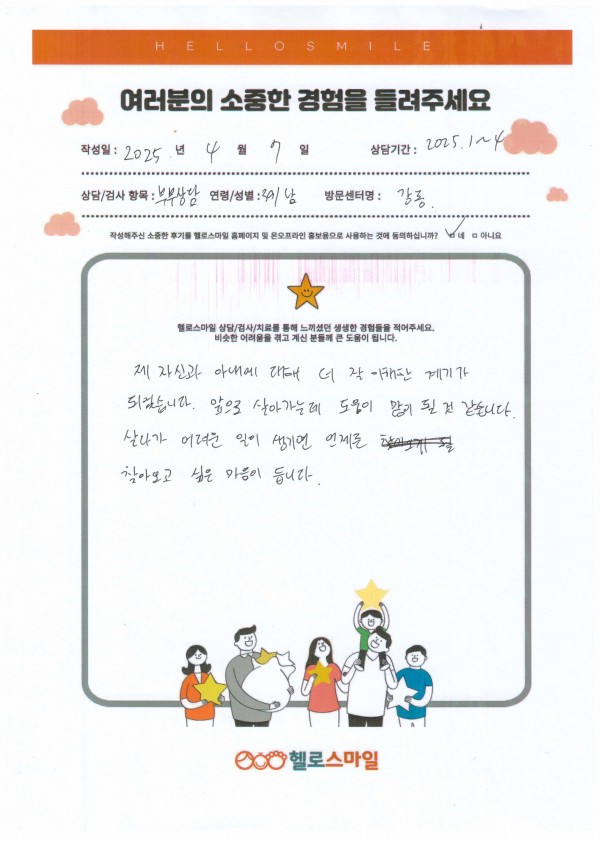 HELLOSMILE
여러분의 소중한 경험을 들려주세요
작성일 : 2025 년 4 월 7 일 상담기간 : 2025. 1~4
상담/검사 항목 : 부부상담 연령/성별 : 39/남 방문센터명 : 강동
작성해주신 소중한 후기를 헬로스마일 홈페이지 및 온오프라인 홍보용으로 사용하는 것에 동의하십니까? ㅁ 네 ㅁ 아니요
헬로스마일 상담/검사/치료를 통해 느끼셨던 생생한 경험들을 적어주세요.
비슷한 어려움을 겪고 계신 분들께 큰 도움이 됩니다.
제 자신과 아내에 대해 더 잘 이해한 계기가
되었습니다. 앞으로 살아가는데 도움이 많이 될 것 같습니다.
살다가 어려운 일이 생기면 언제든
찾아오고 싶은 마음이 듭니다.
헬로스마일